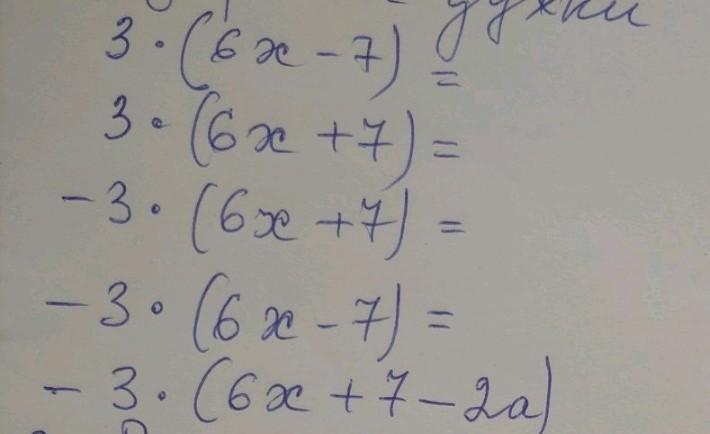 3 · (6x - 7) =
3 · (6x + 7) =
-3 · (6x + 7) =
-3 · (6x - 7) =
-3 · (6x + 7 - 2a)